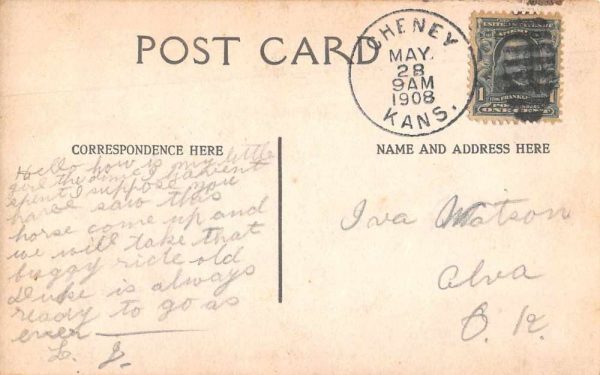 POST CARD
CHENEY
MAY.
28
9AM
1908
KANS.
FRANKLIN
1
ONE CENT
CORRESPONDENCE HERE
Hello how is my little
girl the dime I havent
spent I suppose you
have saw this
horse come up and
we will take that
buggy ride old
Duke is always
ready to go as
ever
L. J.
NAME AND ADDRESS HERE
Iva Watson
Alva
O. K.